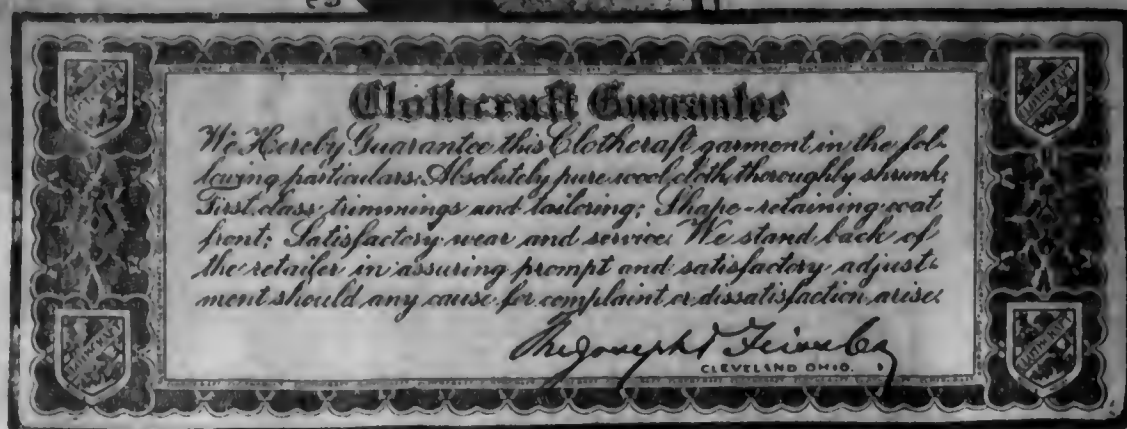 Clothcraft Guarantee
We Hereby Guarantee this Clothcraft garment in the fol-
lowing particulars: Absolutely pure wool cloth, thoroughly shrunk;
First class trimmings and tailoring; Shape-retaining coat
front; Satisfactory wear and service. We stand back of
the retailer in assuring prompt and satisfactory adjust-
ment should any cause for complaint or dissatisfaction arise.
The Joseph & Feiss Co
CLEVELAND OHIO.
CLOTHCRAFT
CLOTHCRAFT
CLOTHCRAFT
CLOTHCRAFT